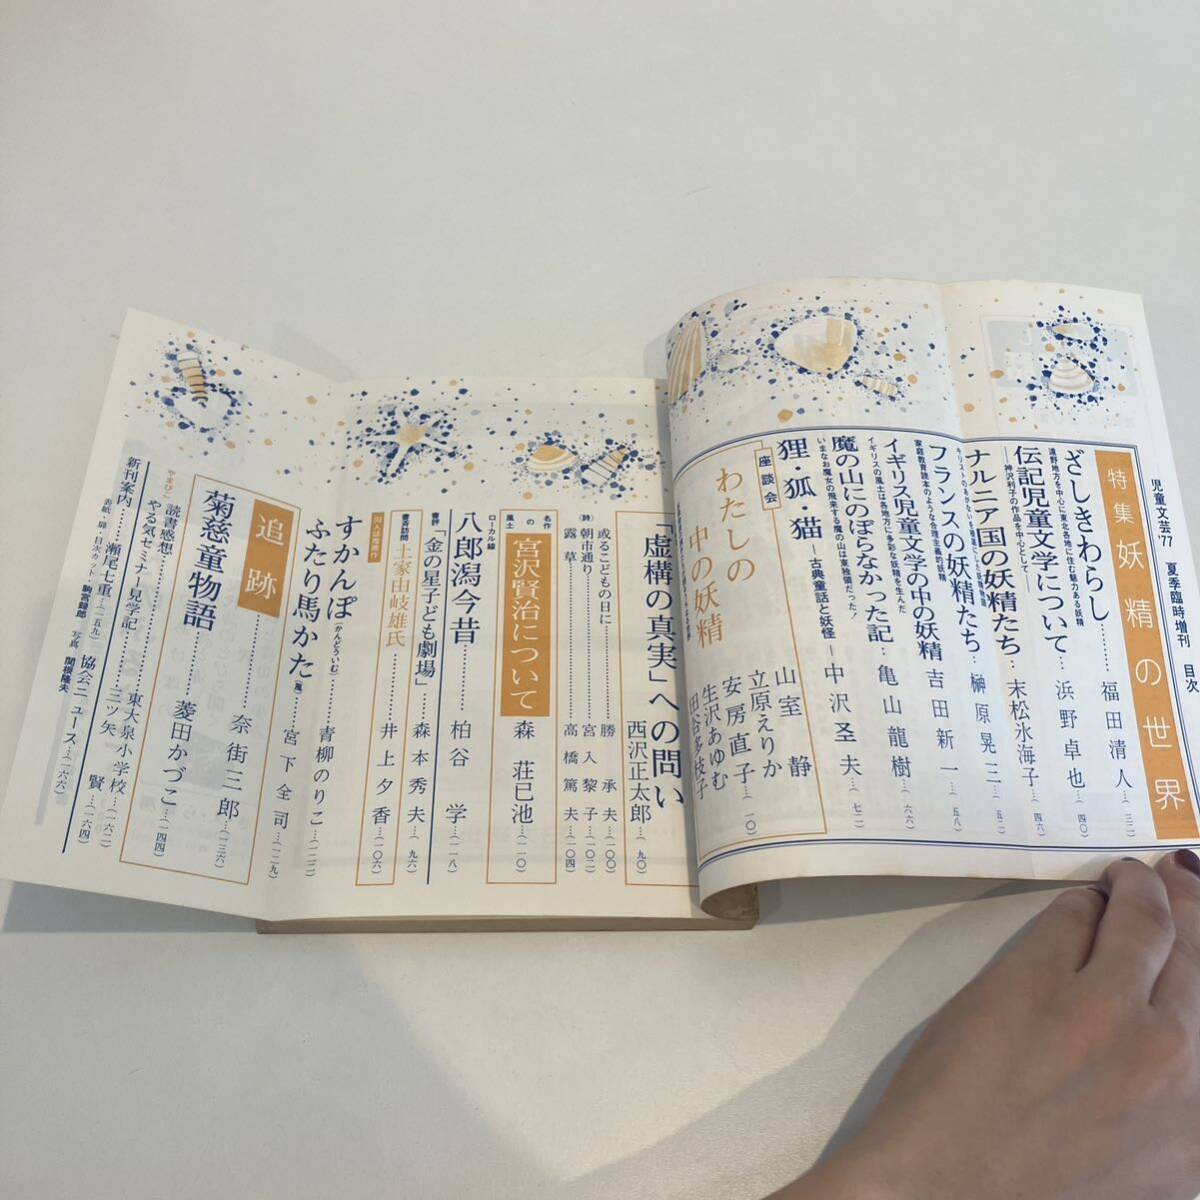 児童文芸'77 夏季臨時増刊 目次
特集 妖精の世界
ざしきわらし……福田清人…(三二)
遠野地方を中心に東北各地に住む魅力ある妖精
伝記児童文学について…浜野卓也…(四〇)
―神沢利子の作品を中心として―
ナルニア国の妖精たち…末松氷海子…(四六)
フランスの妖精たち…榊原晃三…(五二)
家庭教育読本のような合理主義的妖精
イギリス児童文学の中の妖精 吉田新一…(五八)
イギリスの風土は各地方に多彩な妖精を生んだ
魔の山にのぼらなかった記…亀山龍樹…(六六)
いまなお魔女の飛来する魔の山は東独領だった!
狸・狐・猫―古典童話と妖怪―中沢圣夫…(七二)
座談会
わたしの中の妖精
山室静
立原えりか
安房直子…(一〇)
生沢あゆむ
田谷多枝子
「虚構の真実」への問い 西沢正太郎…(九〇)
或るこどもの日に……勝承夫…(一〇〇)
(詩) 朝市通り……宮入黎子…(一〇二)
露草……高橋篤夫…(一〇四)
名作の風土
宮沢賢治について 森荘已池…(一一〇)
ローカル線
八郎潟今昔……柏谷学…(一一八)
書評 「金の星子ども劇場」……森本秀夫…(九六)
書斎訪問 土家由岐雄氏……井上夕香…(一〇六)
すかんぽ(かんどういむ)……青柳のりこ…(一二二)
ふたり馬かた(風)……宮下全司…(一二九)
追跡……奈街三郎…(一三六)
菊慈童物語……菱田かづこ…(一四四)
やまびこ
読書感想……東大泉小学校…(一六二)
やる気ゼミナー見学記……三ツ矢賢…(一六四)
新刊案内……瀬尾七重…(一五九) 協会ニュース…(一六六)
表紙・扉・目次カット・駒宮録郎 写真 関根隆夫